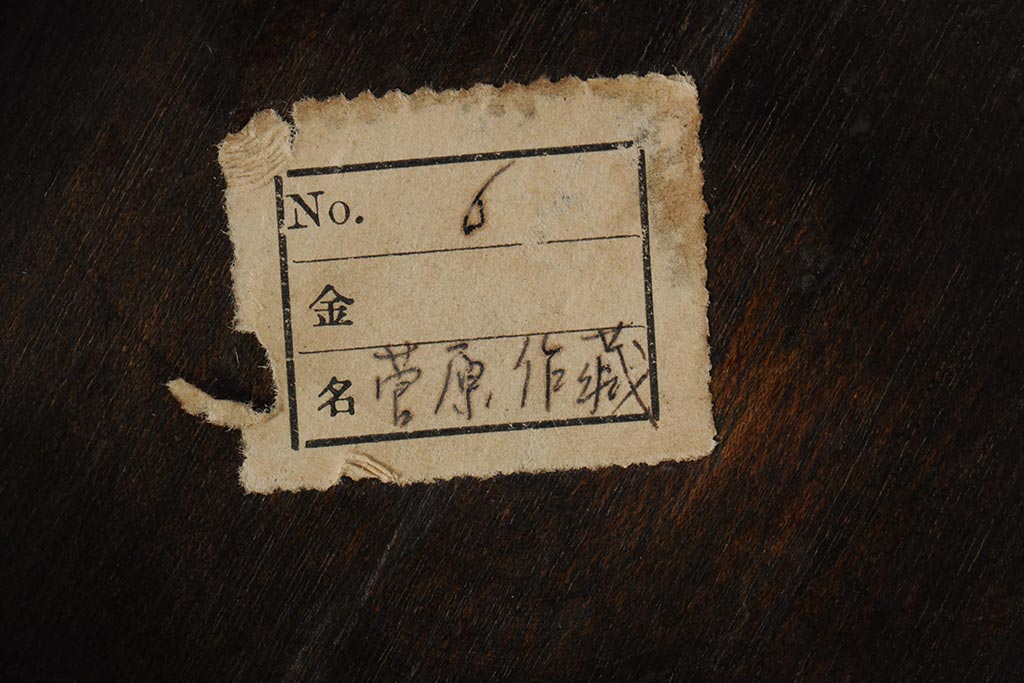 No. 6
金
名 菅原作蔵